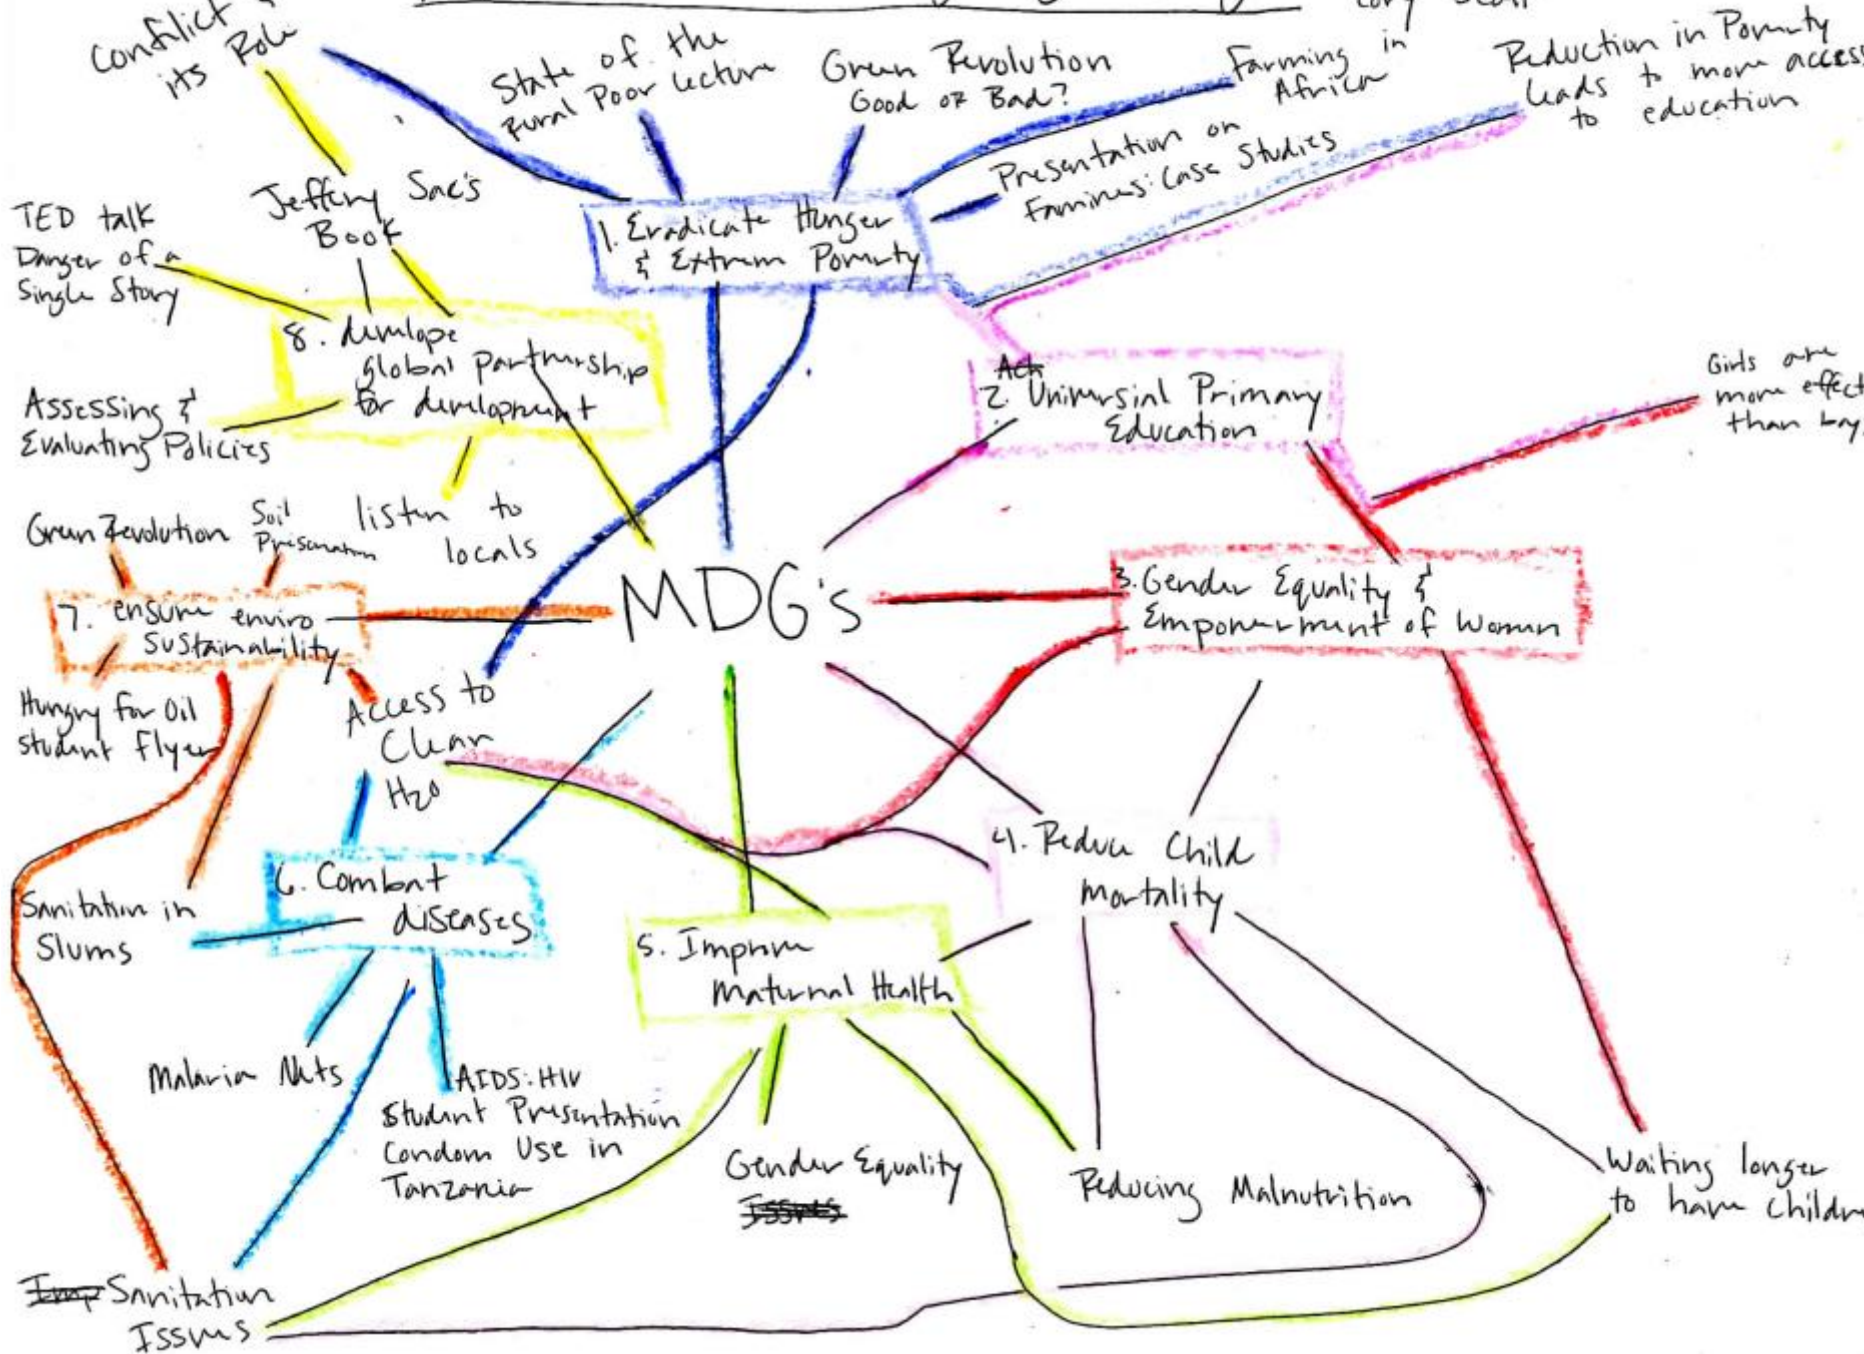 Conflict &
its Role
State of the
Rural Poor Lecture
Green Revolution
Good or Bad?
Farming in
Africa
Reduction in Poverty
leads to more access
to education
Presentation on
Famines: Case Studies
TED talk
Danger of a
Single Story
Jeffery Sac's
Book
1. Eradicate Hunger
& Extrem Poverty
8. develope
global partnership
for development
Assessing &
Evaluating Policies
listen to
locals
Ach
2. Universial Primary
Education
Girls are
more effect
than boy
Green Revolution
Soil
7. ensure enviro
sustainability
MDG's
3. Gender Equality &
Empowerment of Women
Hungry for Oil
student flyer
Access to
Clean
H2O
4. Reduce Child
mortality
Sanitation in
Slums
6. Combat
diseases
5. Improve
maternal Health
Malaria Nets
AIDS: HIV
Student Presentation
Condom Use in
Tanzania
Gender Equality
Issues
Reducing Malnutrition
Waiting longer
to have childre
Imp Sanitation
Issues